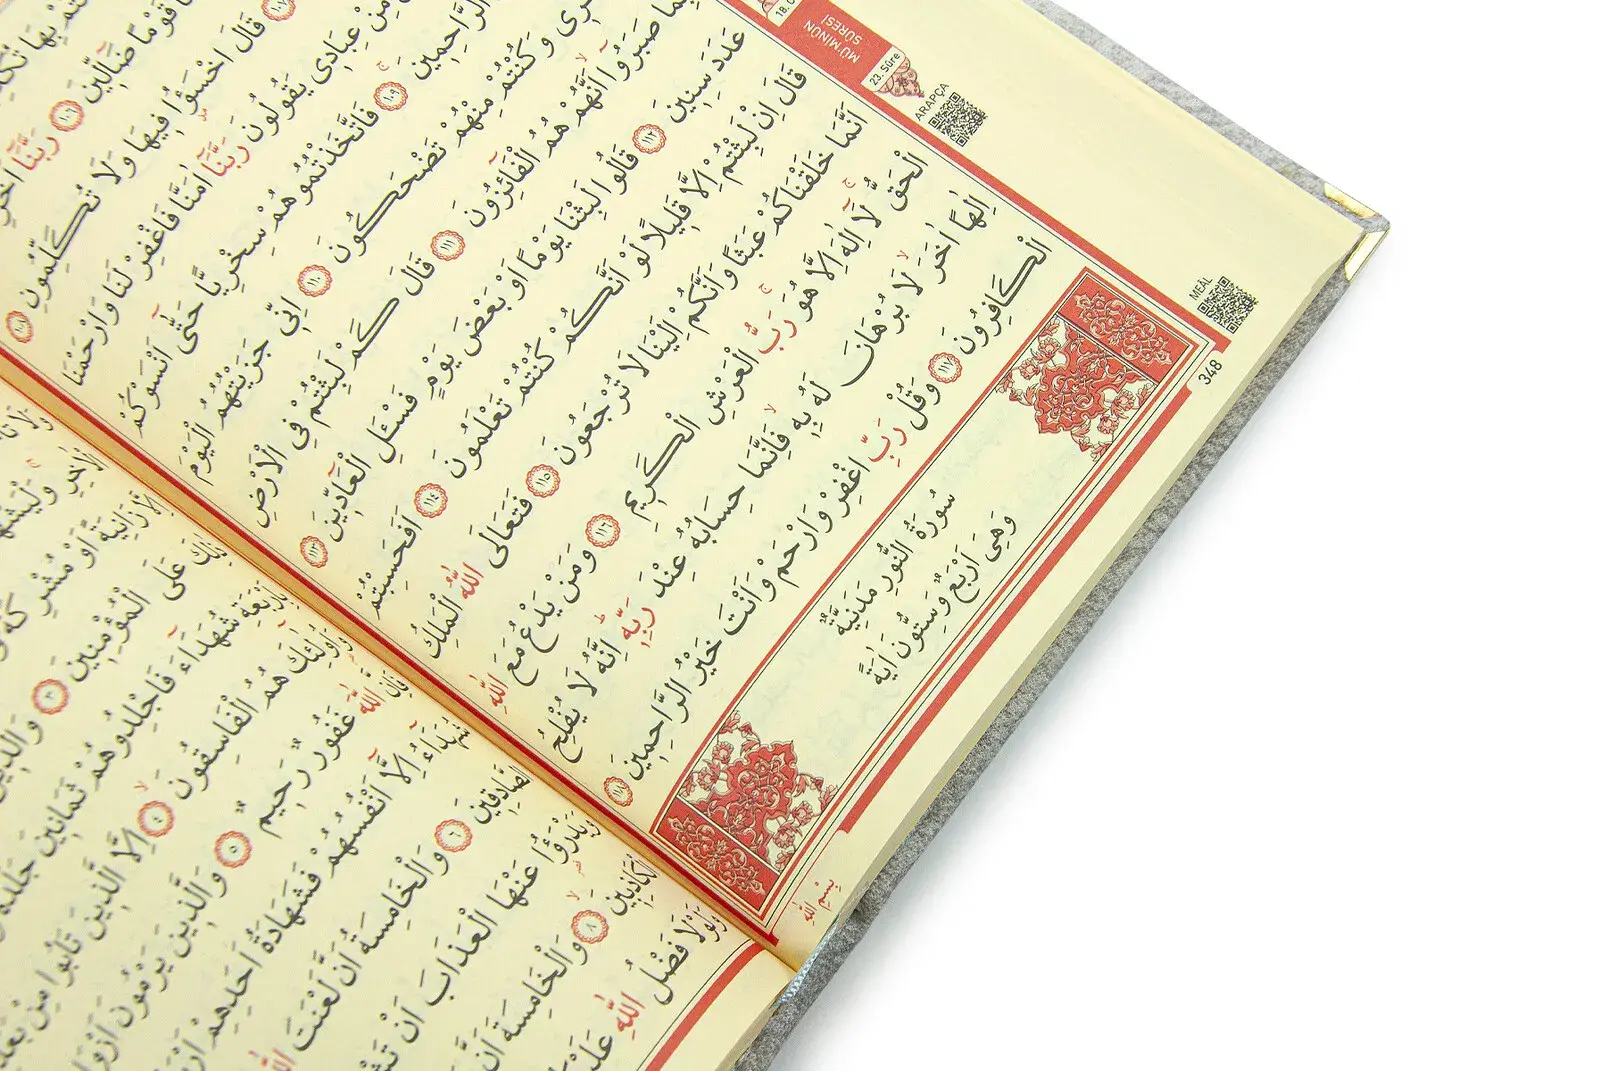 MÜ'MİNÛN
SÛRESİ
23. Sûre
ARAPÇA
MEÂL
348
قَوْمًا ضَٓالّ۪ينَ ﴿١٠٦﴾ رَبَّنَٓا
﴿١٠٧﴾ قَالَ اخْسَؤُ۫ا ف۪يهَا وَلَا تُكَلِّمُونِ ﴿١٠٨﴾
مِنْ عِبَاد۪ي يَقُولُونَ رَبَّنَٓا اٰمَنَّا فَاغْفِرْ لَنَا وَارْحَمْنَا
الرَّاحِم۪ينَ ﴿١٠٩﴾ فَاتَّخَذْتُمُوهُمْ سِخْرِيًّا حَتّٰٓى اَنْسَوْكُمْ
وَكُنْتُمْ مِنْهُمْ تَضْحَكُونَ ﴿١١٠﴾ اِنّ۪ي جَزَيْتُهُمُ الْيَوْمَ
صَبَرُٓوا اَنَّهُمْ هُمُ الْفَٓائِزُونَ ﴿١١١﴾ قَالَ كَمْ لَبِثْتُمْ فِي الْاَرْضِ
عَدَدَ سِن۪ينَ ﴿١١٢﴾ قَالُوا لَبِثْنَا يَوْمًا اَوْ بَعْضَ يَوْمٍ فَسْـَٔلِ الْعَٓادّ۪ينَ ﴿١١٣﴾
قَالَ اِنْ لَبِثْتُمْ اِلَّا قَل۪يلًا لَوْ اَنَّكُمْ كُنْتُمْ تَعْلَمُونَ ﴿١١٤﴾ اَفَحَسِبْتُمْ
اَنَّمَا خَلَقْنَاكُمْ عَبَثًا وَاَنَّكُمْ اِلَيْنَا لَا تُرْجَعُونَ ﴿١١٥﴾ فَتَعَالَى اللّٰهُ الْمَلِكُ
الْحَقُّ لَٓا اِلٰهَ اِلَّا هُوَ رَبُّ الْعَرْشِ الْكَر۪يمِ ﴿١١٦﴾ وَمَنْ يَدْعُ مَعَ اللّٰهِ
اِلٰهًا اٰخَرَ لَا بُرْهَانَ لَهُ بِه۪ فَاِنَّمَا حِسَابُهُ عِنْدَ رَبِّه۪ اِنَّهُ لَا يُفْلِحُ
الْكَافِرُونَ ﴿١١٧﴾ وَقُلْ رَبِّ اغْفِرْ وَارْحَمْ وَاَنْتَ خَيْرُ الرَّاحِم۪ينَ ﴿١١٨﴾
سُورَةُ النُّورِ مَدَنِيَّةٌ
وَهِيَ اَرْبَعٌ وَسِتُّونَ اٰيَةً
بِسْمِ اللّٰهِ
عَلَى الْمُؤْمِن۪ينَ ﴿٣﴾ وَالَّذ۪ينَ
بِاَرْبَعَةِ شُهَدَٓاءَ فَاجْلِدُوهُمْ ثَمَان۪ينَ جَلْدَةً
وَاُو۬لٰٓئِكَ هُمُ الْفَاسِقُونَ ﴿٤﴾ اِلَّا الَّذ۪ينَ تَابُوا مِنْ بَعْدِ
فَاِنَّ اللّٰهَ غَفُورٌ رَح۪يمٌ ﴿٥﴾ وَالَّذ۪ينَ يَرْمُونَ
شُهَدَٓاءُ اِلَّٓا اَنْفُسُهُمْ فَشَهَادَةُ اَحَدِهِمْ
الصَّادِق۪ينَ ﴿٦﴾ وَالْخَامِسَةُ اَنَّ لَعْنَتَ
وَيَدْرَؤُ۬ا عَنْهَا الْعَذَابَ اَنْ
الْكَاذِب۪ينَ ﴿٨﴾ وَالْخَامِسَةَ اَنَّ
وَلَوْلَا فَضْلُ اللّٰهِ